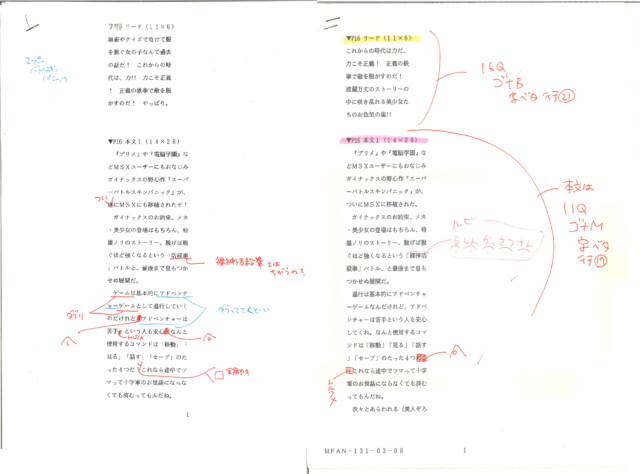 スーパー
バトルスキン
パニック
P16 リード (11×6)
術やクイズで負けて服
を脱ぐ女の子なんて過去
の話だ! これからの時
代は、力!! 力こそ正義
! 正義の鉄拳で敵を脱
がすのだ! やっぱり。
▼P16 本文1 (14×28)
『プリメ』や『電脳学園』な
どMSXユーザーにもおなじみ
ガイナックスの野心作『スーパ
ーバトルスキンパニック』が、
つい
にMSXにも移植されたぞ!
ガイナックスのお約束、メカ
・美少女の登場はもちろん、特
撮ノリのストーリー、脱げば脱
ぐほど強くなるという「活破拳
」バトルと、最後まで息もつか
せぬ展開だ。
ちがうの?
ゲームは基本的にアドベンチ
ャーゲームとして進行していく
のだけれど アドベンチャーは
苦手 という人も安心 なんと
ダブり
ダブっててくどい
使用するコマンドは「移動」「
見る」「話す」「セーブ」のた
った4つだ! これなら途中でツ
マって十字軍のお世話にならな
くても済むってもんだね。
1
▼P16 リード (11×6)
これからの時代は力だ。
力こそ正義! 正義の鉄
拳で敵を脱がすのだ!
波瀾万丈のストーリーの
中に咲き乱れる美少女た
ちのお色気の嵐!!
16Q
ゴナB
字ベタ 行㉑
▼P16 本文1 (14×28)
『プリメ』や『電脳学園』な
どMSXユーザーにもおなじみ
ガイナックスの野心作『スーパ
ーバトルスキンパニック』が、
ついにMSXに移植された。
ガイナックスのお約束、メカ
・美少女の登場はもちろん、特
撮ノリのストーリー、脱げば脱
ぐほど強くなるという「裸神活
殺拳」バトルと、最後まで息も
つかせぬ展開だ。
ルビ
本文は
11Q
ゴナM
字ベタ
行⑰
進行は基本的にアドベンチャ
ーゲームなんだけれど、アドベ
ンチャーは苦手という人も安心
してくれ。なんと使用するコマ
ンドは「移動」「見る」「話す
」「セーブ」のたった4つ
これなら途中でツマって十字
軍のお世話にならなくても済む
ってもんだね。
次々とあらわれる(美人ぞろ
トルツメ
MFAN-131-03-08
1